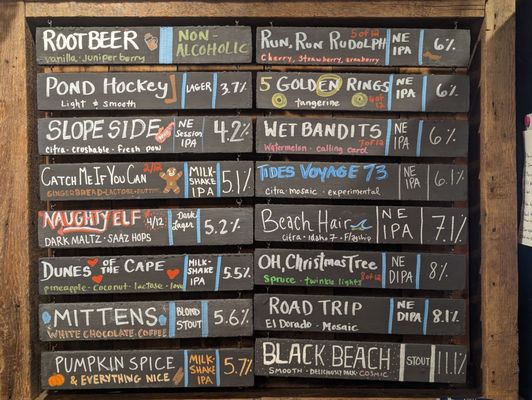 ROOT BEER NON-ALCOHOLIC
vanilla · Juniper berry
POND HOCKEY LAGER 3.7%
Light & smooth
SLOPE SIDE NE Session IPA 4.2%
citra · crushable · fresh pow
CATCH ME IF YOU CAN 2/12 MILK-SHAKE IPA 5.1%
GINGERBREAD · LACTOSE
NAUGHTY ELF 4/12 Dark Lager 5.2%
DARK MALTZ · SAAZ HOPS
DUNES OF THE CAPE MILK-SHAKE IPA 5.5%
pineapple · coconut · lactose · love
MITTENS BLOND STOUT 5.6%
WHITE CHOCOLATE · COFFEE
PUMPKIN SPICE MILK-SHAKE IPA 5.7%
& EVERYTHING NICE
RUN, RUN RUDOLPH 5 of 12 NE IPA 6%
Cherry, Strawberry, cranberry
5 GOLDEN RINGS NE IPA 6%
tangerine 6 of 12
WET BANDITS NE IPA 6%
Watermelon · calling card 7 of 12
TIDES VOYAGE 73 NE IPA 6.1%
Citra · mosaic · experimental
BEACH HAIR NE IPA 7.1%
citra · Idaho 7 · Flagship
OH, CHRISTMAS TREE NE DIPA 8%
Spruce · twinkle lights 8 of 12
ROAD TRIP NE DIPA 8.1%
El Dorado · Mosaic
BLACK BEACH STOUT 11.1%
SMOOTH · DELICIOUSLY DARK · COSMIC